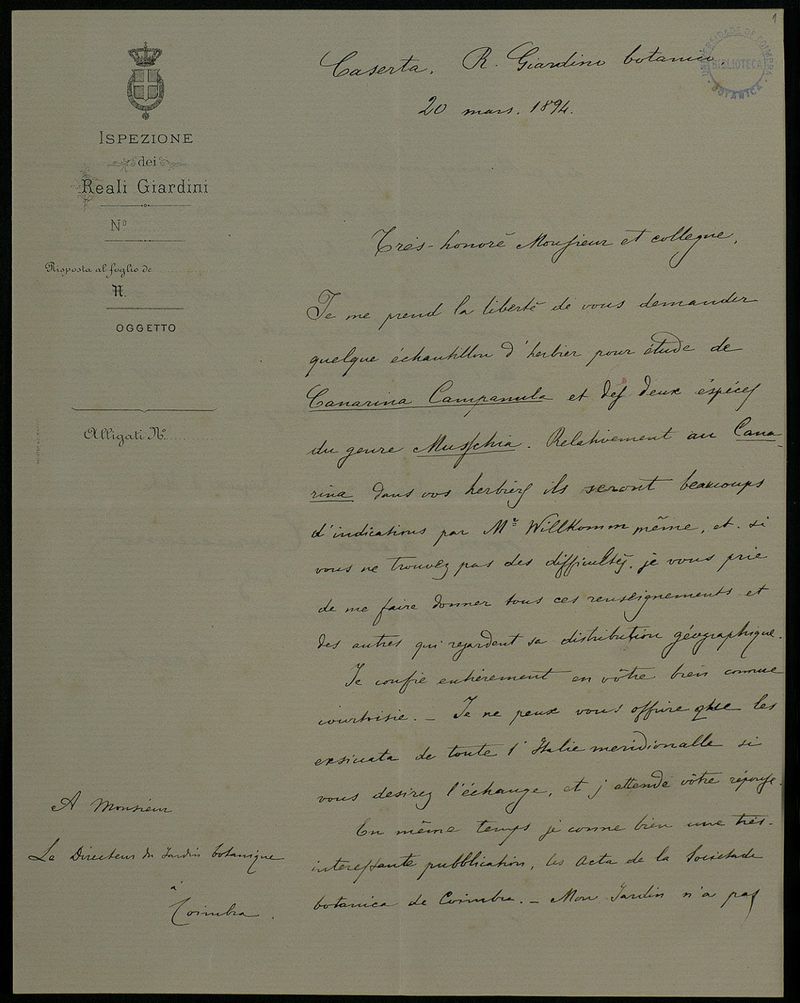 1
UNIVERSIDADE DE COIMBRA
BIBLIOTECA
BOTANICA
ISPEZIONE
dei
Reali Giardini
No
Risposta al foglio de
N.
OGGETTO
Alligati No.
Caserta. R. Giardino botanico
20 mars. 1894.
Très-honoré Monsieur et collegue,
Je me prend la liberté de vous demander
quelque échantillon d'herbier pour étude de
Canarina Campanula et des deux éspéces
du genre Musschia. Relativement au Cana-
rina dans vos herbiers ils seront beaucoups
d'indications par Mr. Willkomm même, et si
vous ne trouvez pas des difficultés, je vous prie
de me faire donner tous ces renseignements et
des autres qui regardent sa distribution géographique.
Je confie entièrement en vôtre bien connue
courtoisie. — Je ne peux vous offrire que les
exsicata de toute l'Italie meridionalle si
vous desirez l'échange, et j'attende vôtre réponse.
En même temps je conne bien une très-
interessante pubblication, les Acta de la Societade
botanica de Coimbra. — Mon Jardin n'a pas
A Monsieur
Le Directeur du Jardin botanique
à
Coimbra.